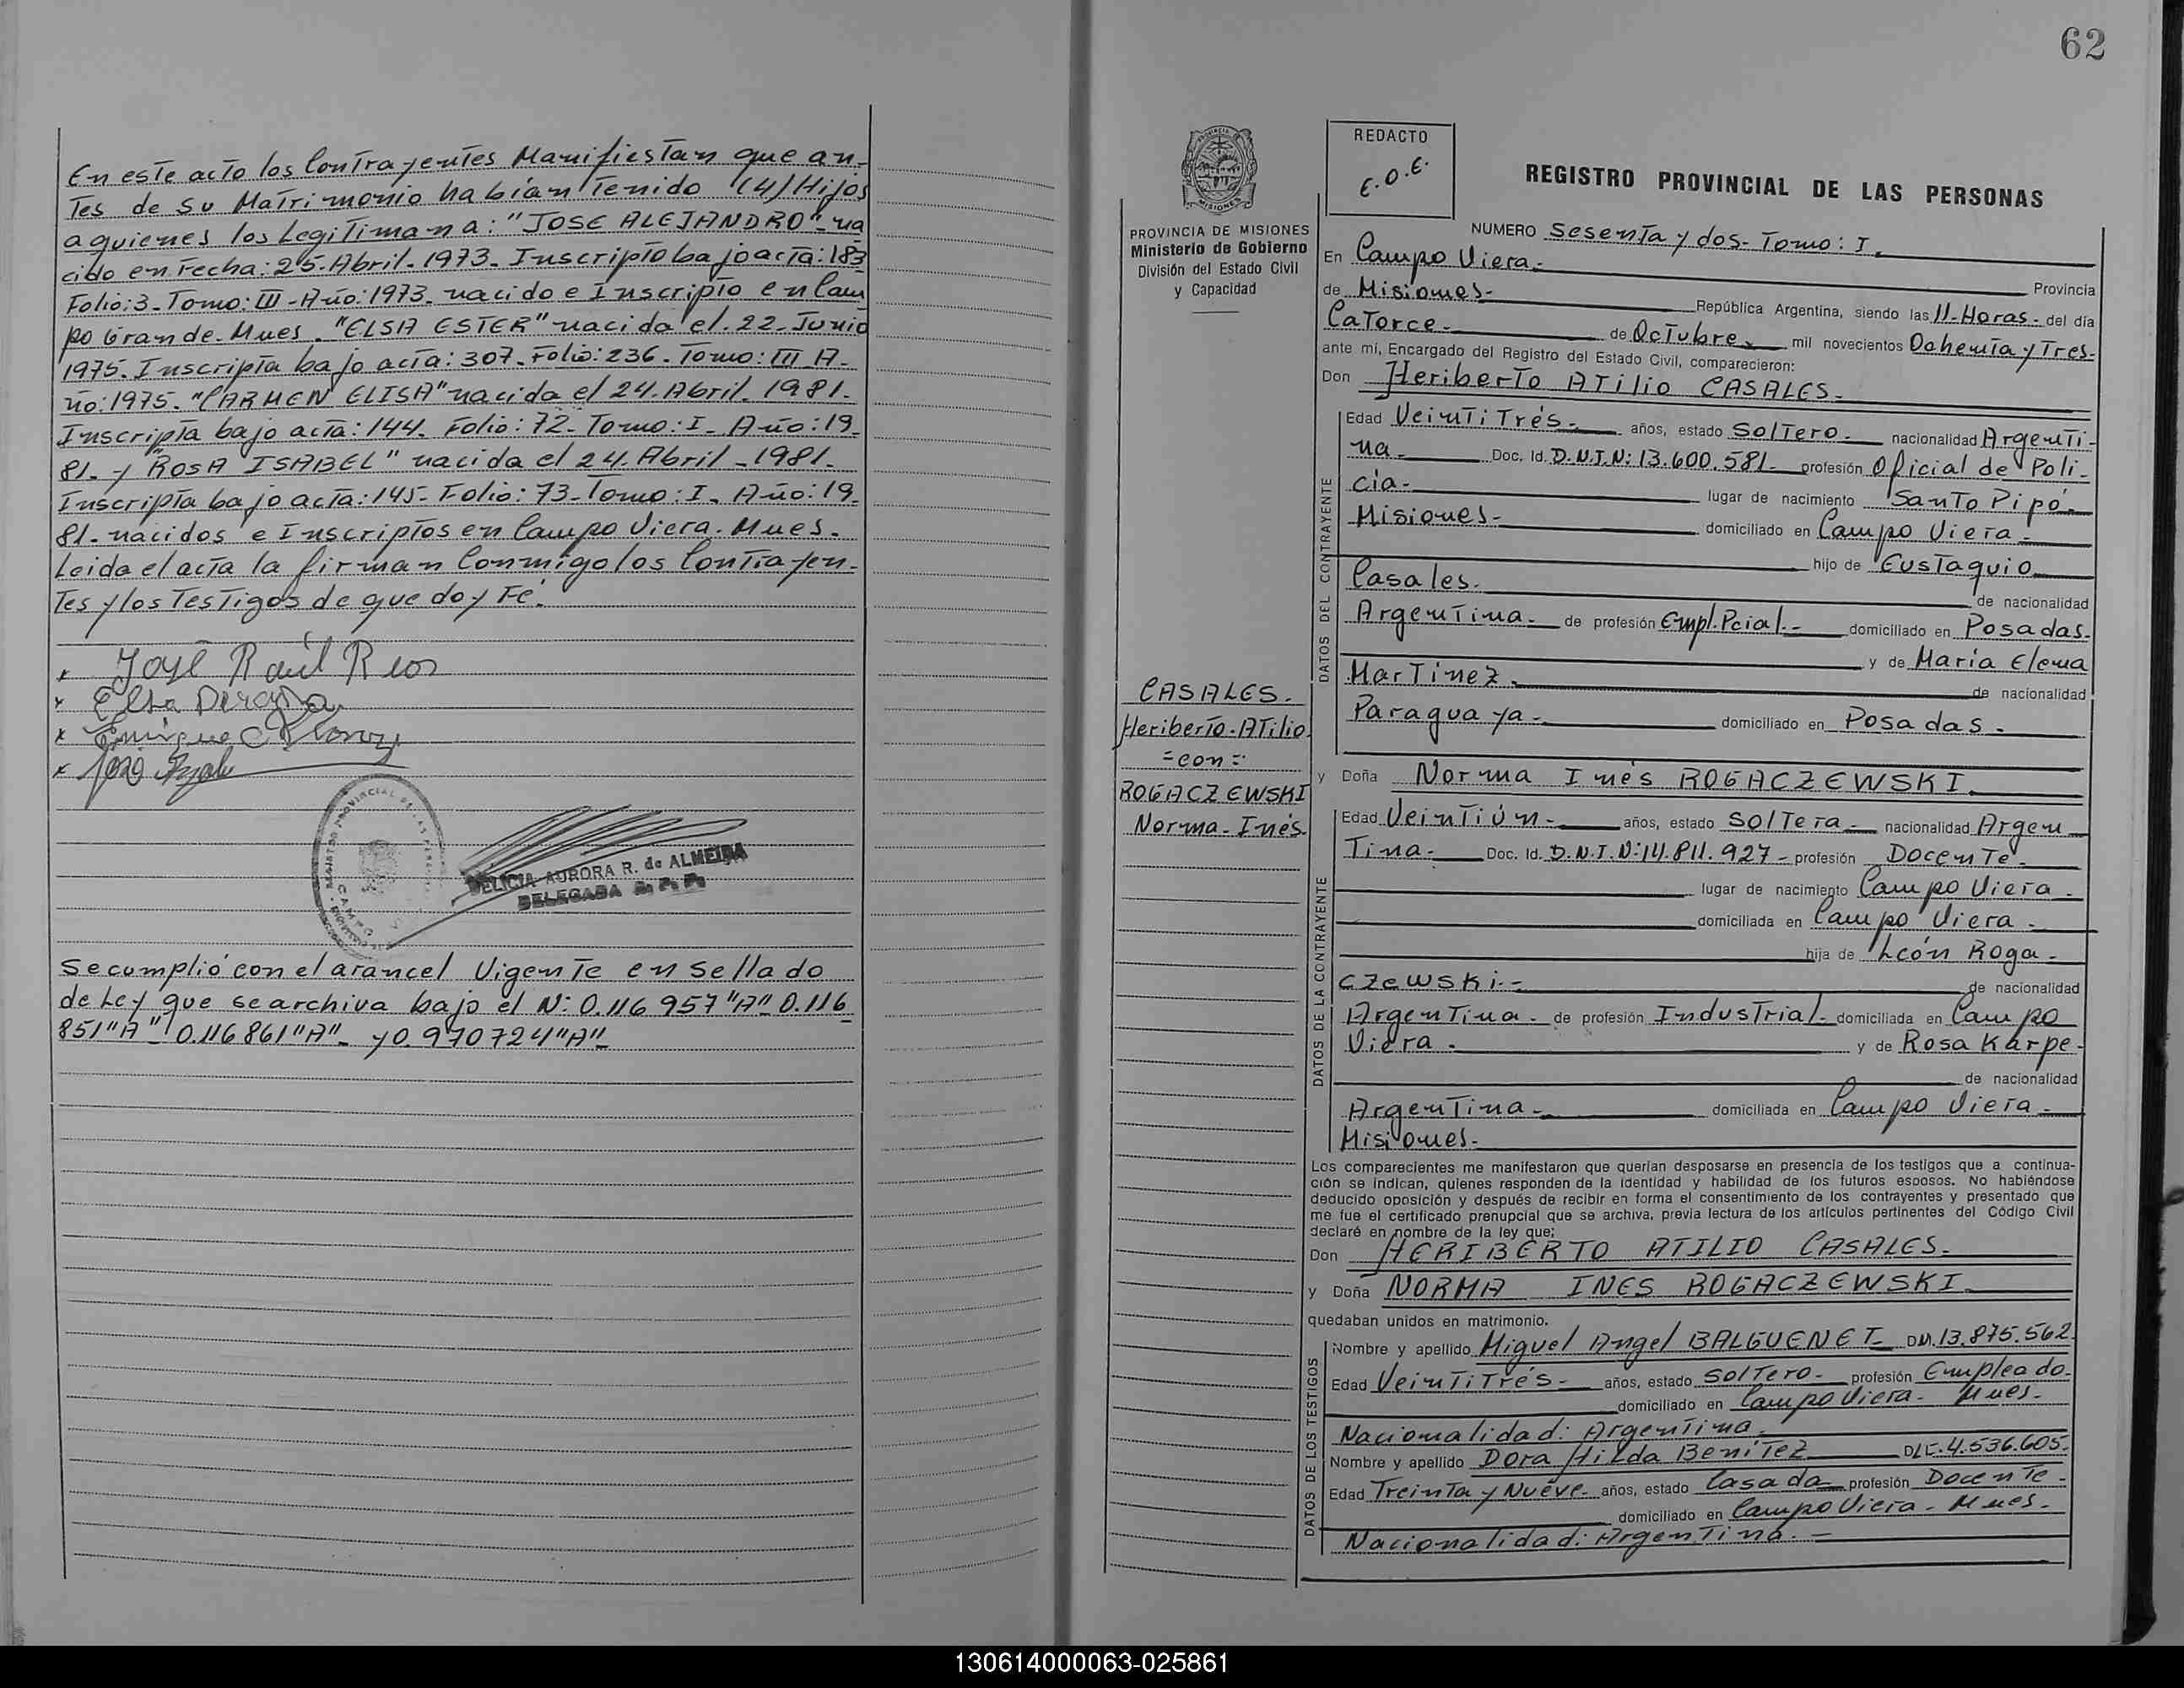 En este acto los Contrayentes Manifiestan que an-
tes de su Matrimonio habían tenido (4) Hijos
a quienes los Legitiman a: "JOSE ALEJANDRO" na
cido en Fecha: 25-Abril-1973- Inscripto bajo acta: 183
Folio: 3- Tomo: III-Año: 1973- nacido e Inscripto en Cam
po Grande- Mnes. "ELSA ESTER" nacida el 22-Junio
1975. Inscripta bajo acta: 307- Folio: 236- Tomo: III A-
ño: 1975- "CARMEN ELISA" nacida el 24-Abril-1981-
Inscripta bajo acta: 144- Folio: 72- Tomo: I- Año: 19-
81- y ROSA ISABEL" nacida el 24-Abril-1981-
Inscripta bajo acta: 145- Folio: 73- Tomo: I- Año: 19-
81- nacidos e Inscriptos en Campo Viera- Mnes-
Leida el acta la firman Conmigo los Contrayen-
tes y los Testigos de que doy Fé.
x José Raúl Rios
x Elsa
x Enrique
x José
DELICIA AURORA R. de ALMEIDA
DELEGADA R. P. P.
Se cumplió con el arancel Vigente en Sellado
de Ley que se archiva bajo el N: 0.116 957 "A"- 0.116
851 "A"- 0.116 861 "A"- y 0.970724 "A"-
62
REDACTO
E.O.E.
REGISTRO PROVINCIAL DE LAS PERSONAS
PROVINCIA DE MISIONES
Ministerio de Gobierno
División del Estado Civil
y Capacidad
NUMERO Sesenta y dos- Tomo: I-
En Campo Viera- Provincia
de Misiones- República Argentina, siendo las 11-Horas- del día
Catorce- de Octubre- mil novecientos Ochenta y Tres-
ante mí, Encargado del Registro del Estado Civil, comparecieron:
Don Heriberto Atilio CASALES-
DATOS DEL CONTRAYENTE
Edad Veinti Trés- años, estado Soltero- nacionalidad Argenti-
na- Doc. Id. D.N.I.N: 13.600.581- profesión Oficial de Poli-
cía- lugar de nacimiento Santo Pipó-
Misiones- domiciliado en Campo Viera-
hijo de Eustaquio
Casales- de nacionalidad
Argentina- de profesión Empl. Pcial.- domiciliado en Posadas-
y de María Elena
Martinez- de nacionalidad
Paraguaya- domiciliado en Posadas-
CASALES-
Heriberto-Atilio
=con=
ROGACZEWSKI
Norma-Inés-
y Doña Norma Inés ROGACZEWSKI-
DATOS DE LA CONTRAYENTE
Edad Veintiún- años, estado Soltera- nacionalidad Argen-
tina- Doc. Id. D.N.I.N: 14.811.927- profesión Docente-
lugar de nacimiento Campo Viera-
domiciliada en Campo Viera-
hija de León Roga-
czewski- de nacionalidad
Argentina- de profesión Industrial- domiciliada en Campo
Viera- y de Rosa Karpe-
de nacionalidad
Argentina- domiciliada en Campo Viera-
Misiones-
Los comparecientes me manifestaron que querían desposarse en presencia de los testigos que a continua-
ción se indican, quienes responden de la identidad y habilidad de los futuros esposos. No habiéndose
deducido oposición y después de recibir en forma el consentimiento de los contrayentes y presentado que
me fue el certificado prenupcial que se archiva, previa lectura de los artículos pertinentes del Código Civil
declaré en nombre de la ley que:
Don HERIBERTO ATILIO CASALES-
y Doña NORMA INES ROGACZEWSKI-
quedaban unidos en matrimonio.
DATOS DE LOS TESTIGOS
Nombre y apellido Miguel Angel BALGUENET- DNI.13.875.562
Edad Veinti Trés- años, estado Soltero- profesión Empleado-
domiciliado en Campo Viera- Mnes-
Nacionalidad: Argentina-
Nombre y apellido Dora Hilda Benítez DLC-4.536.605-
Edad Treinta y Nueve- años, estado Casada- profesión Docente-
domiciliado en Campo Viera- Mnes-
Nacionalidad: Argentina-
130614000063-025861